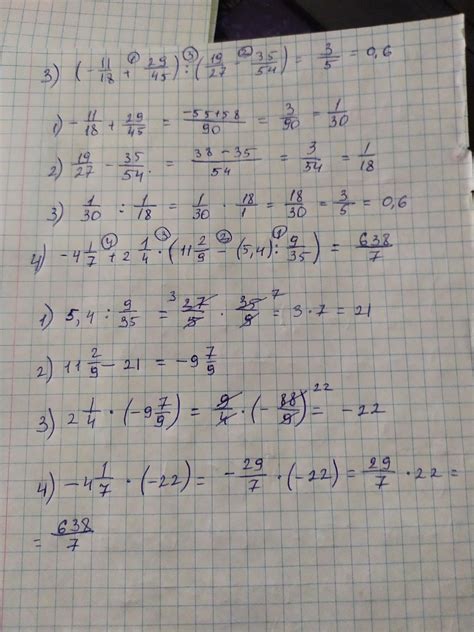 3) (-11/18 + 29/45) : (19/27 - 35/54) = 3/5 = 0,6
1) -11/18 + 29/45 = -55+58/90 = 3/90 = 1/30
2) 19/27 - 35/54. = 38-35/54 = 3/54 = 1/18
3) 1/30 : 1/18 = 1/30 · 18/1 = 18/30 = 3/5 = 0,6
4) -4 1/7 + 2 1/4 · (11 2/9 - (5,4) : 9/35) = 638/7
1) 5,4 : 9/35 = 27/5 · 35/9 = 3·7 = 21
2) 11 2/9 - 21 = -9 7/9
3) 2 1/4 · (-9 7/9) = 9/4 · (-88/9) = -22
4) -4 1/7 · (-22) = -29/7 · (-22) = 29/7 · 22 =
= 638/7